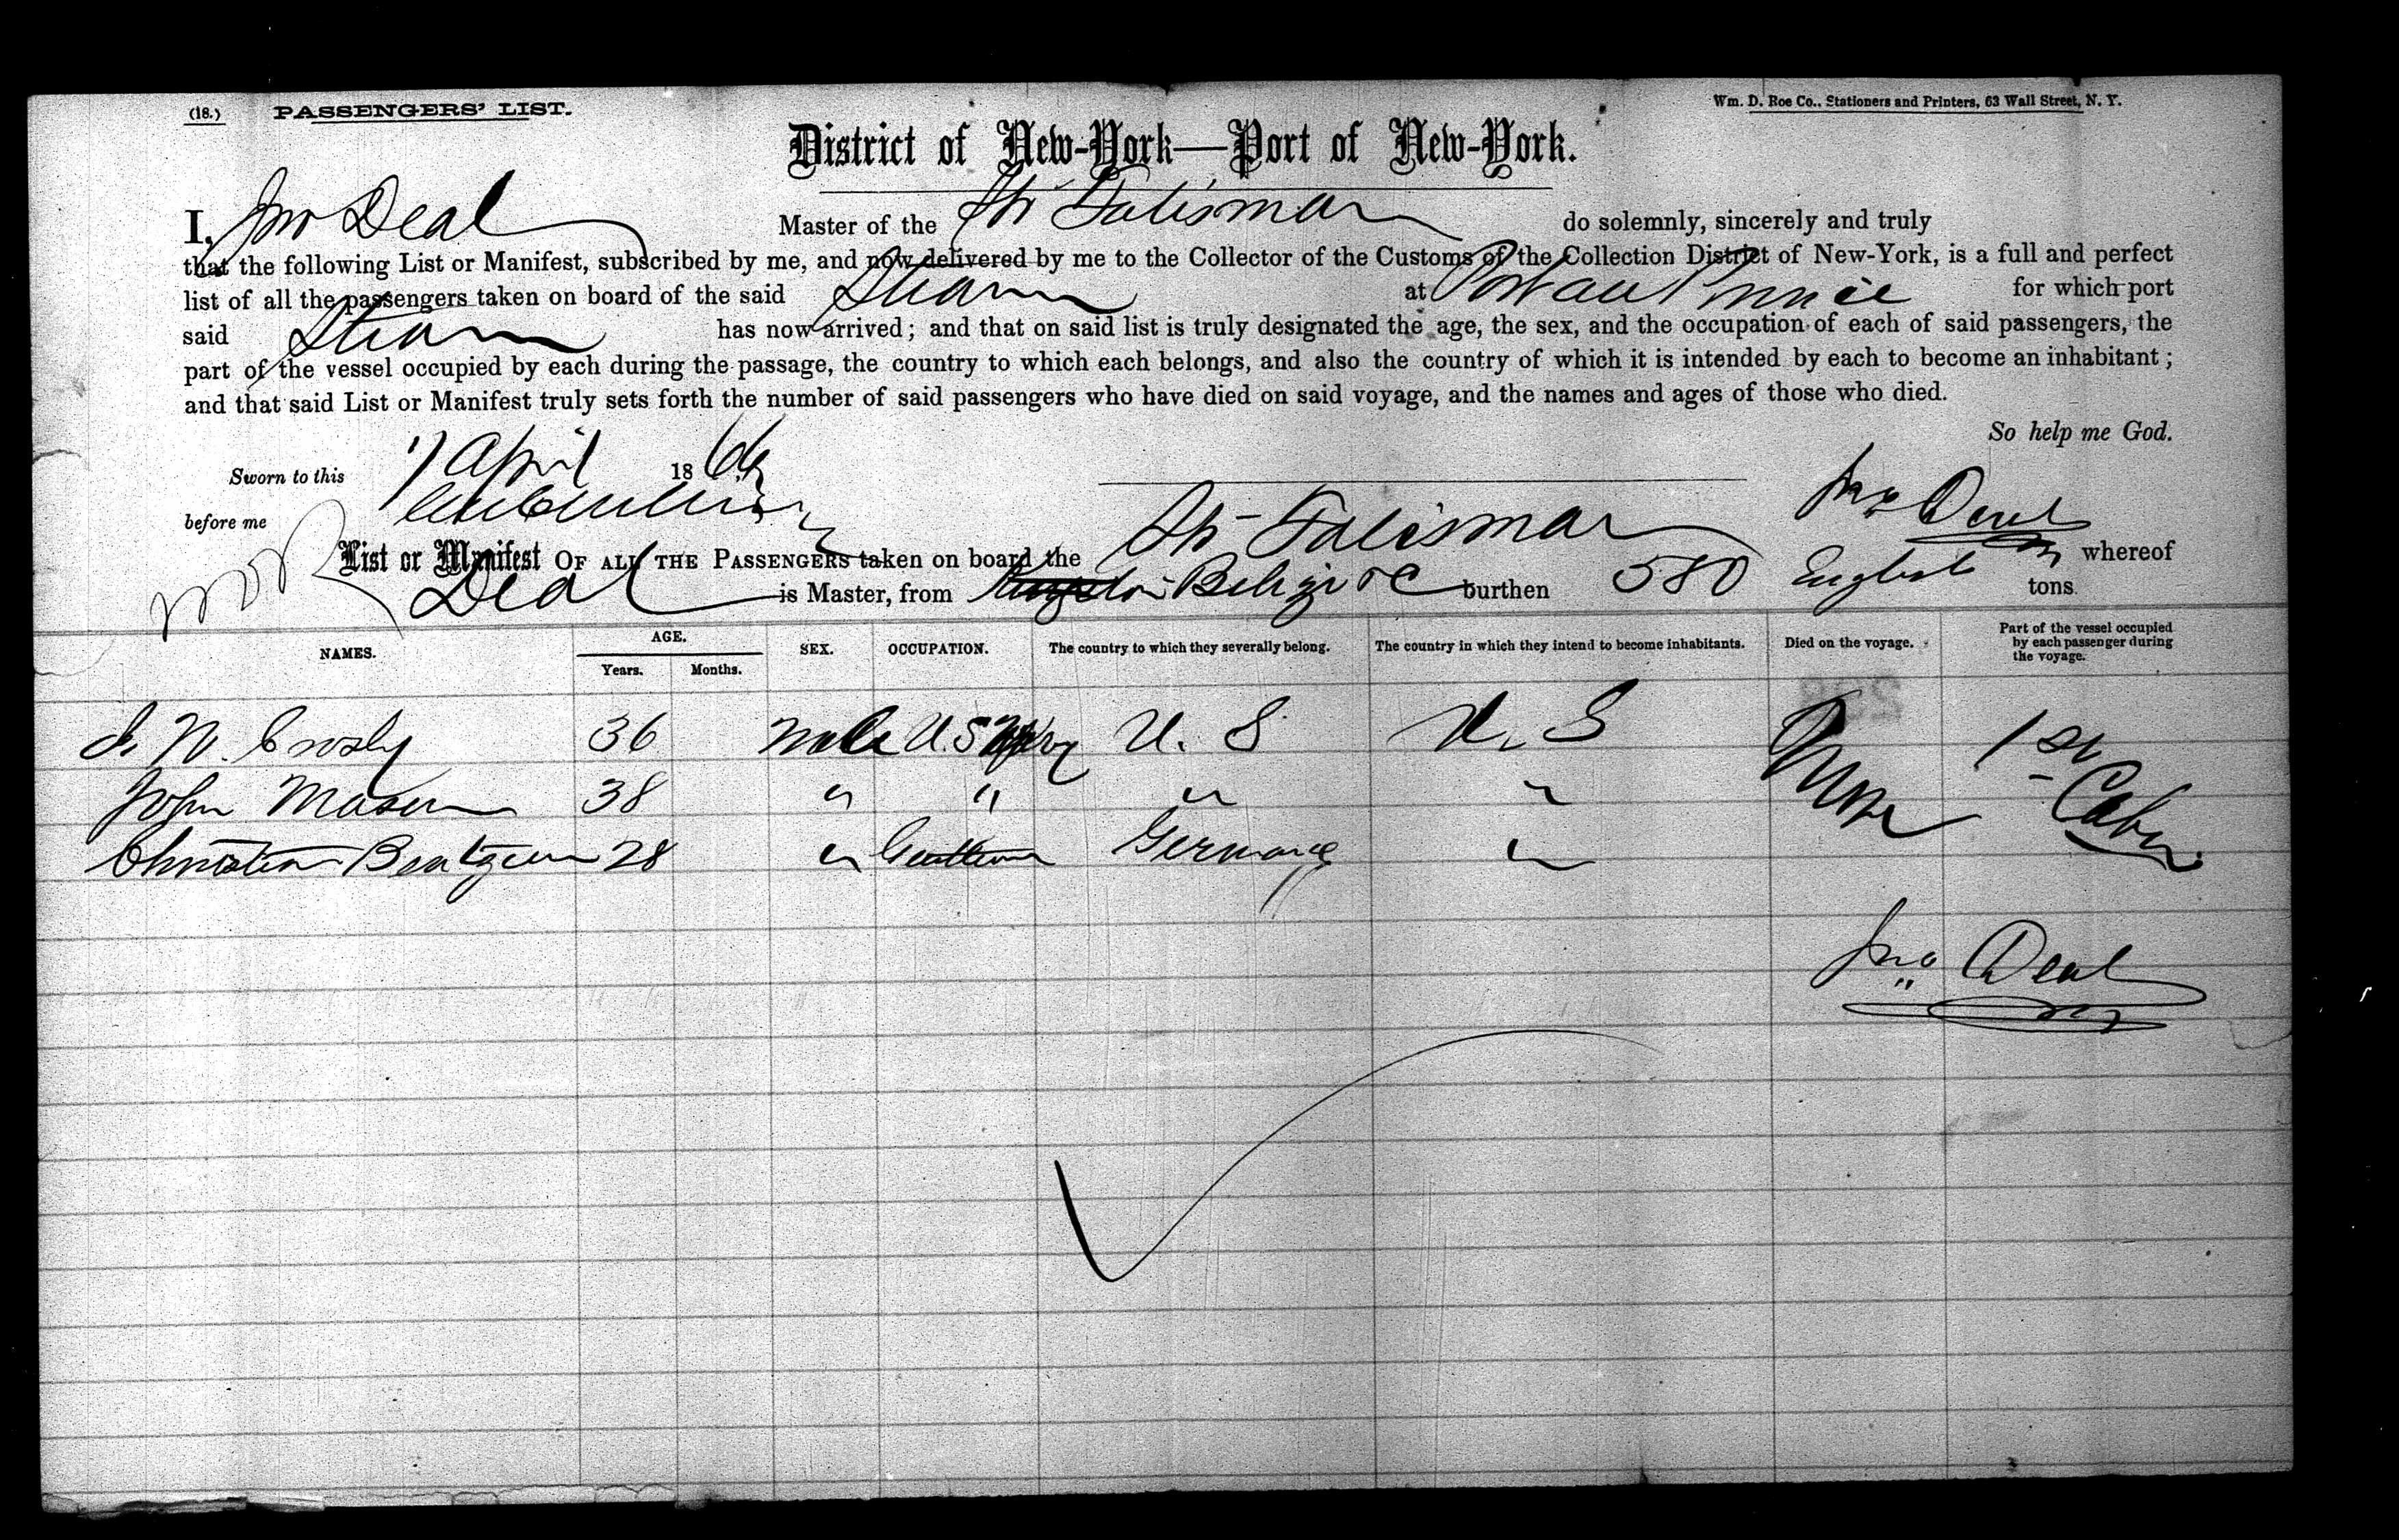 (18.) PASSENGERS' LIST. Wm. D. Roe Co., Stationers and Printers, 63 Wall Street, N. Y.
District of New-York—Port of New-York.
I, Jno Deal Master of the Str Talisman do solemnly, sincerely and truly
that the following List or Manifest, subscribed by me, and now delivered by me to the Collector of the Customs of the Collection District of New-York, is a full and perfect
list of all the passengers taken on board of the said Steam at Port au Prince for which port
said Steam has now arrived; and that on said list is truly designated the age, the sex, and the occupation of each of said passengers, the
part of the vessel occupied by each during the passage, the country to which each belongs, and also the country of which it is intended by each to become an inhabitant;
and that said List or Manifest truly sets forth the number of said passengers who have died on said voyage, and the names and ages of those who died.
So help me God.
Sworn to this 17 April 1866
before me Jno Deal
List or Manifest OF ALL THE PASSENGERS taken on board the Str Talisman English whereof
Deal is Master, from Belize burthen 580 tons.
NAMES. AGE. Years. Months. SEX. OCCUPATION. The country to which they severally belong. The country in which they intend to become inhabitants. Died on the voyage. Part of the vessel occupied by each passenger during the voyage.
W. Crosby 36 Male U. S Navy U. S U. S None 1st Cabin
John Mason 38 " " " "
Christian 28 " Gentleman Germany "
Jno Deal